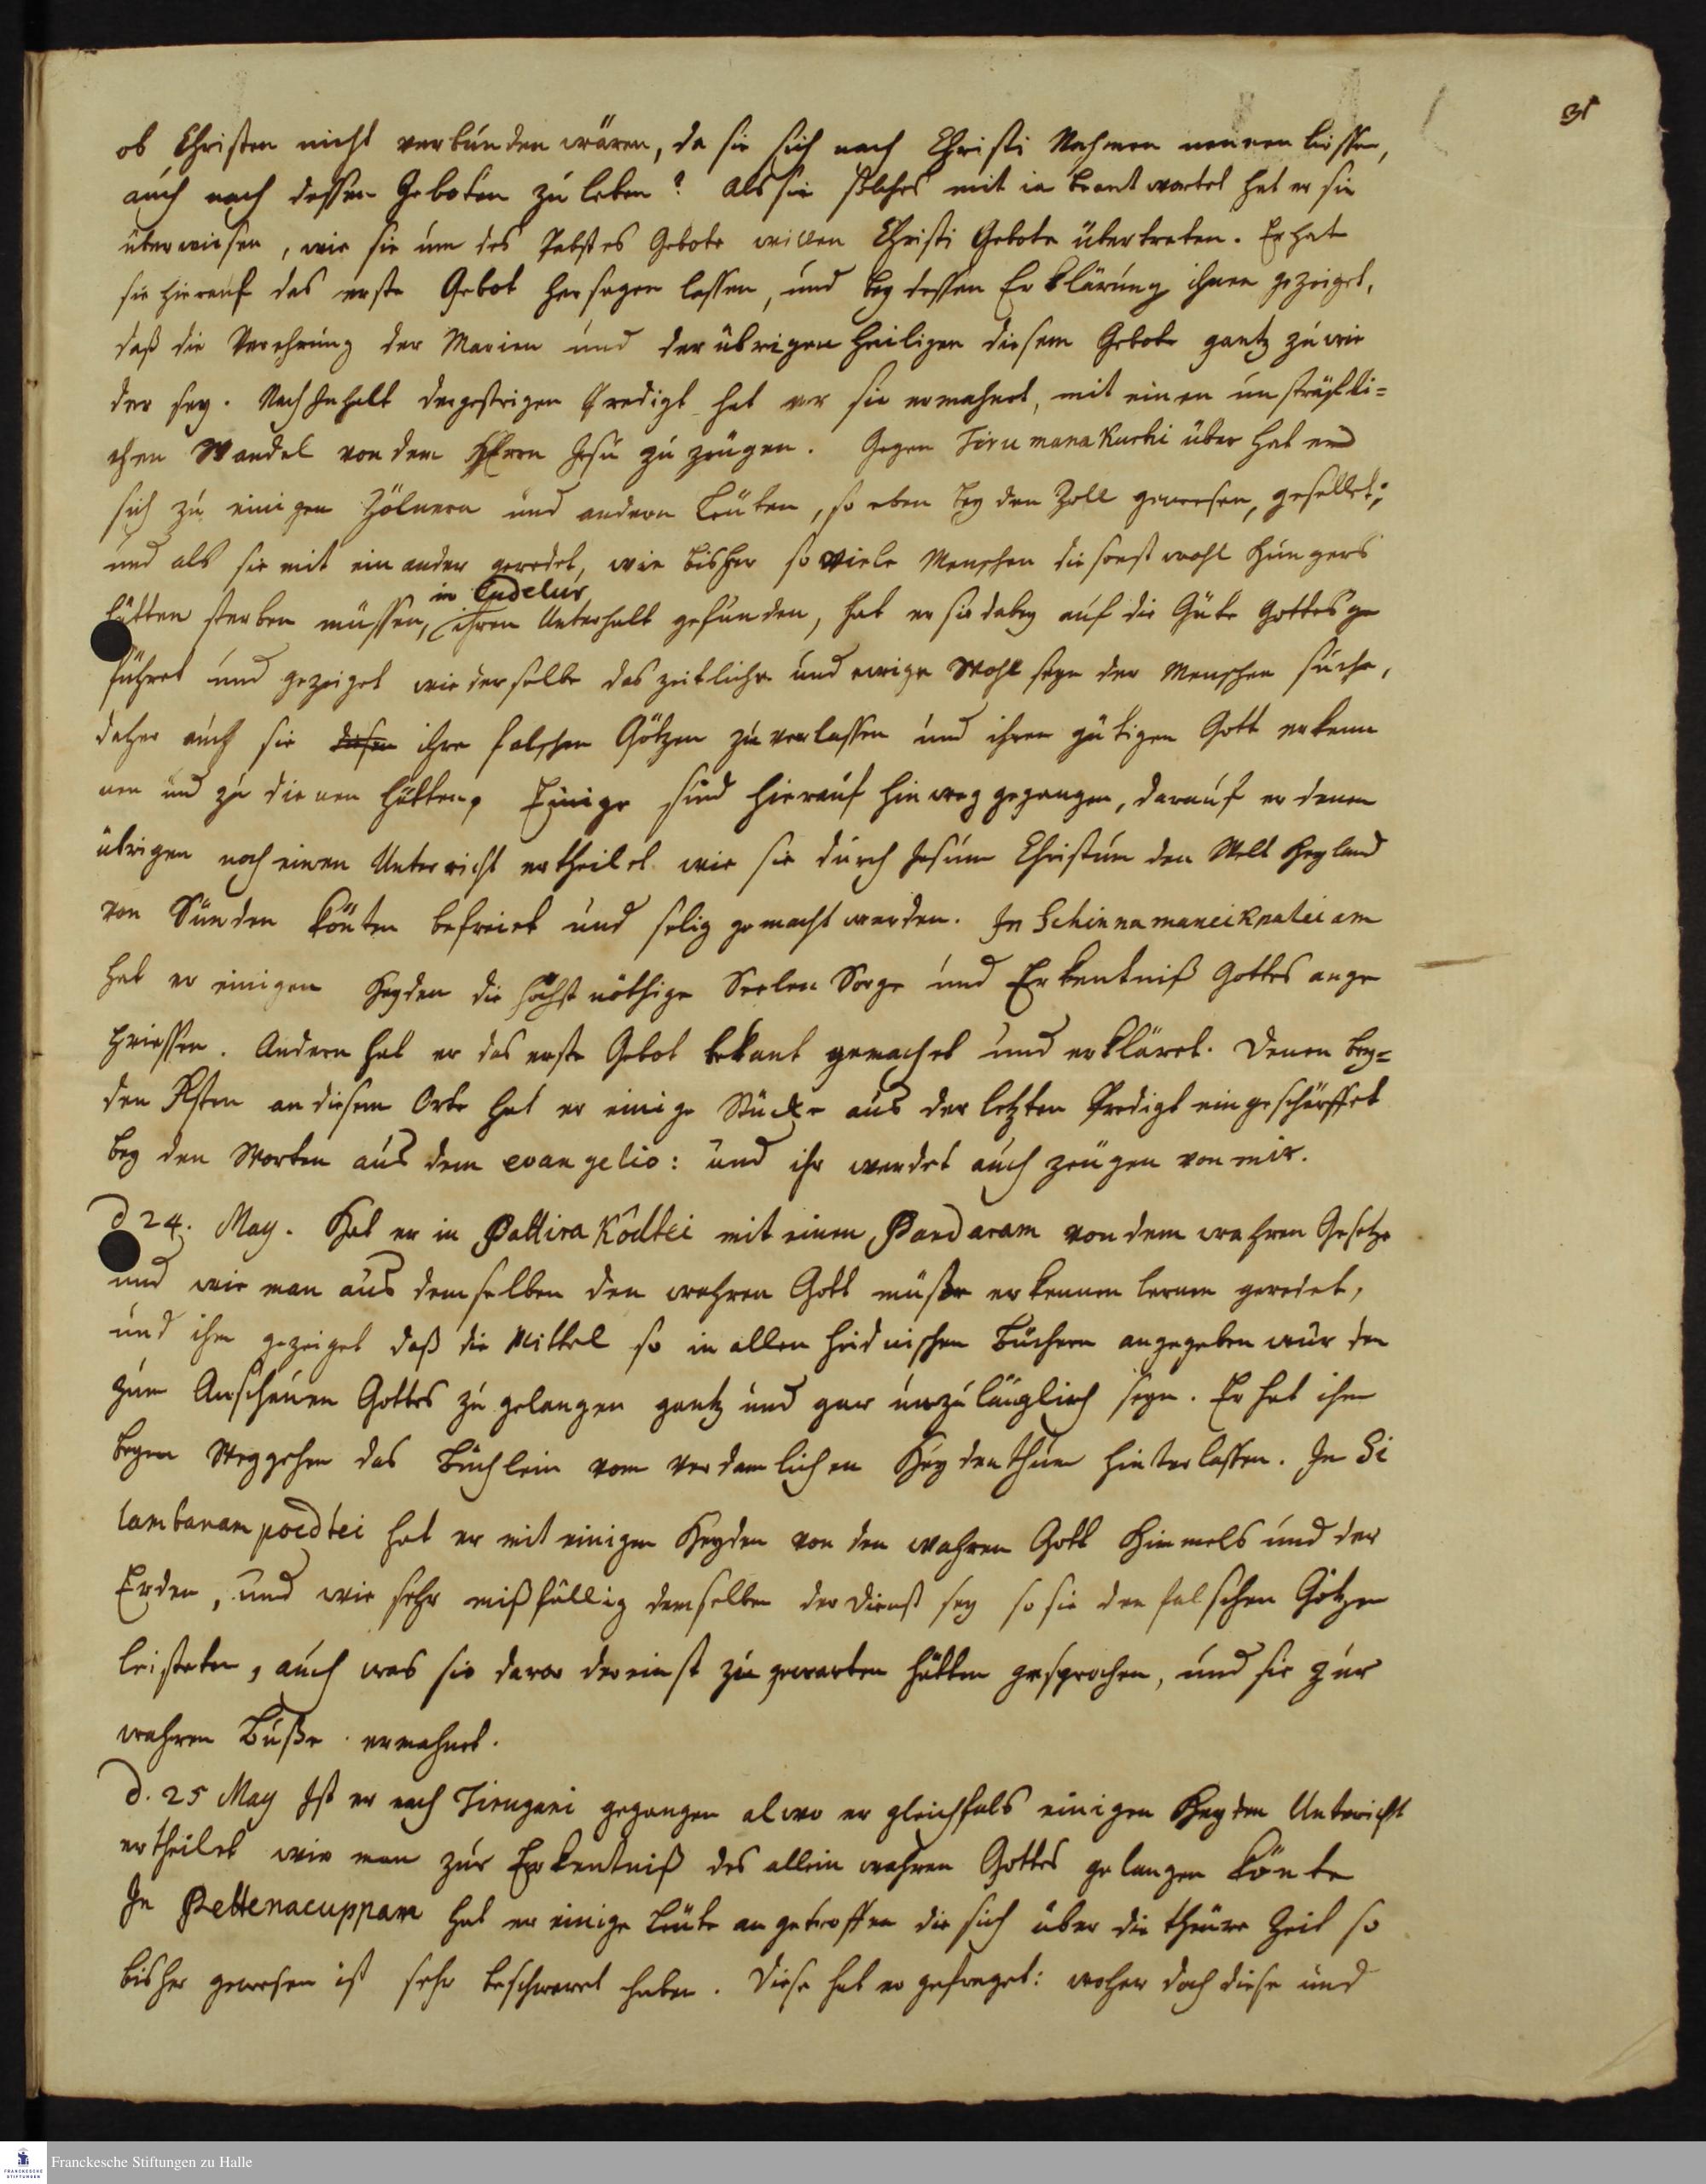 31
ob Christen nicht verbunden wären, da sie sich nach Christi Nahmen nennen liessen,
auch nach dessen Geboten zu leben? Als sie solches mit ja beantwortet hat er sie
überwiesen, wie sie um des Pabstes Gebote willen Christi Gebote übertreten. Er hat
sie hierauf das erste Gebot hersagen lassen, und bey dessen Erklärung ihnen gezeiget,
daß die Verehrung der Marien und der übrigen Heiligen diesem Gebote gantz zu wie
der sey. Nach Inhalt der gestrigen Predigt hat er sie ermahnet, mit einen unsträfli=
chen Wandel von dem HErrn Jesu zu zeugen. Gegen Tirumanakuchi über hat er
sich zu einigen Zölnern und andern Leuten, so eben bey den Zoll gewesen, gesellet;
und als sie mit ein ander geredet, wie bisher so viele Menschen die sonst wohl Hungers
in Cudelur
hätten sterben müssen, ihren Unterhalt gefunden, hat er sie dabey auf die Güte Gottes ge
führet und gezeiget wie derselbe das zeitliche und ewige Wohl seyn der Menschen suche,
daher auch sie diesen ihre falschen Götzen zu verlassen und ihren gütigen Gott erkenn
nen und zu dienen hätten. Einige sind hierauf hinweg gegangen, darauf er denen
übrigen noch einen Unterricht ertheilet wie sie durch Jesum Christum den Welt Heyland
von Sünden könten befreiet und selig gemacht werden. In Schinnamaneiknaleiam
hat er einigen Heyden die höchst nöthige Seelen Sorge und Erkentniß Gottes ange
priessen. Andern hat er das erste Gebot bekant gemachet und erkläret. Denen bey=
den Asten an diesem Orte hat er einige Stücke aus der letzten Predigt eingeschärffet
bey den Worten aus dem evangelio: und ihr werdet auch zeugen von mir.
d 24. May. Hat er in Pattirakôdtei mit einen Pandaram von dem wahren Gesetze
und wie man aus demselben den wahren Gott müste erkennen lernen geredet,
und ihm gezeiget daß die Mittel so in allen heidnischen Büchern angegeben würden
zum Anschauen Gottes zu gelangen gantz und gar unzulänglich seyn. Er hat ihm
beym Weggehen das Büchlein vom verdamlichen Heydenthum hinterlassen. In Si
lambanampoedtei hat er mit einigen Heyden von den wahren Gott Himmels und der
Erden, und wie sehr mißfällig demselben der Dienst sey so sie den falschen Götzen
leisteten, auch was sie davor dereinst zu gewarten hätten gesprochen, und sie zur
wahren Buße ermahnet.
d. 25 May Ist er nach Tirugani gegangen alwo er gleichfals einigen Heyden Untericht
ertheilet wie man zur Erkentniß des allein wahren Gottes gelangen könte
In Pettenacuppam hat er einige Leute angetroffen die sich über die theure Zeit so
bisher gewesen ist sehr beschweret haben. Diese hat er gefraget: woher doch diese und
Franckesche Stiftungen zu Halle